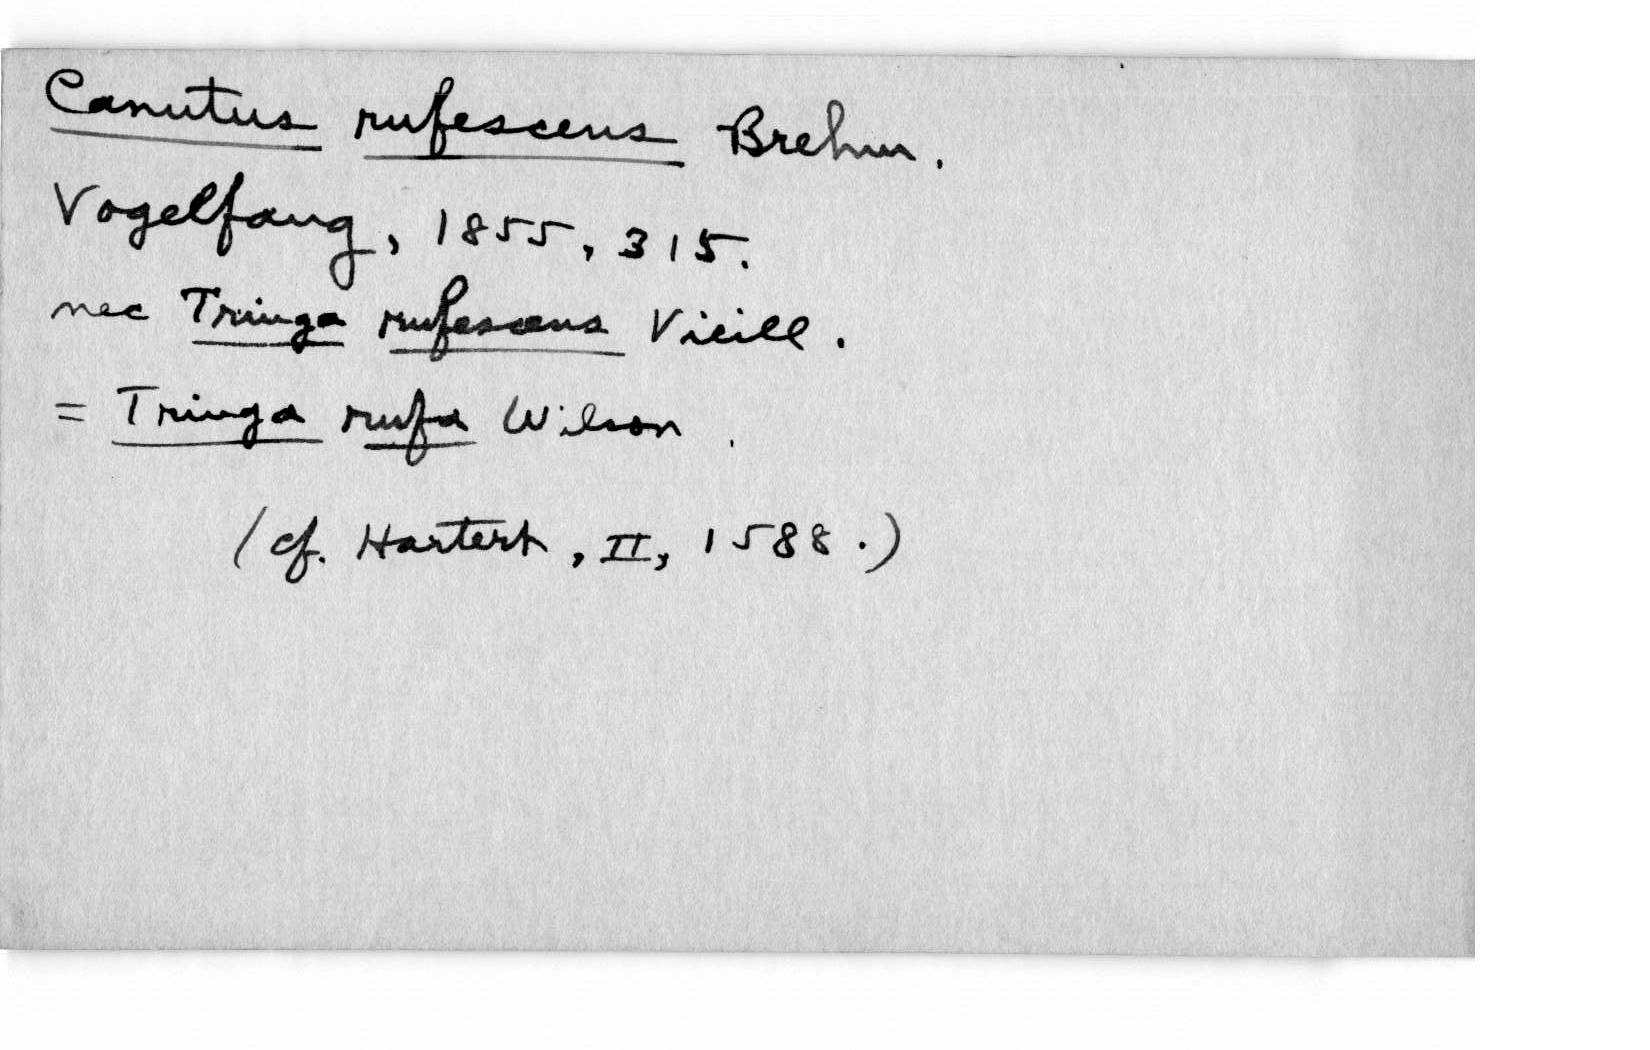 Canutus rufescens Brehm.
Vogelfang, 1855, 315.
nec Tringa rufescens Vieill.
= Tringa rufa Wilson.
(cf. Hartert, II, 1588.)